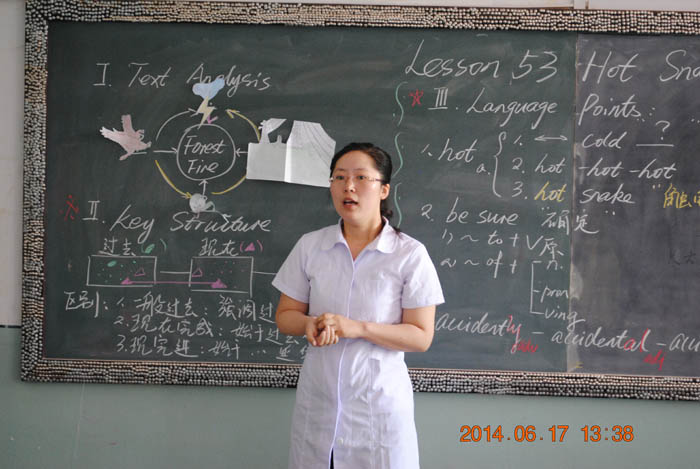 Lesson 53 Hot
I. Text Analysis
Forest
Fire
II. Key Structure
过去
现在
区别: 1. 一般过去: 强调过
2. 现在完成: 始于过去
3. 现完进: 始于
III. Language Points:
1. hot a. 1. ↔ cold ?
2. hot -hot -hot
3. hot snake
2. be sure "确定"
1) ~ to + V原
2) ~ of + n.
pron
ving
accidently - accidental -
adj
2014.06.17 13:38